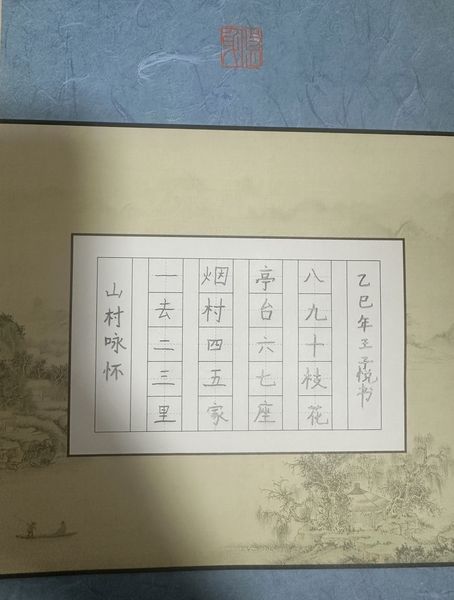 山村咏怀
一去二三里
烟村四五家
亭台六七座
八九十枝花
乙巳年王予悦书